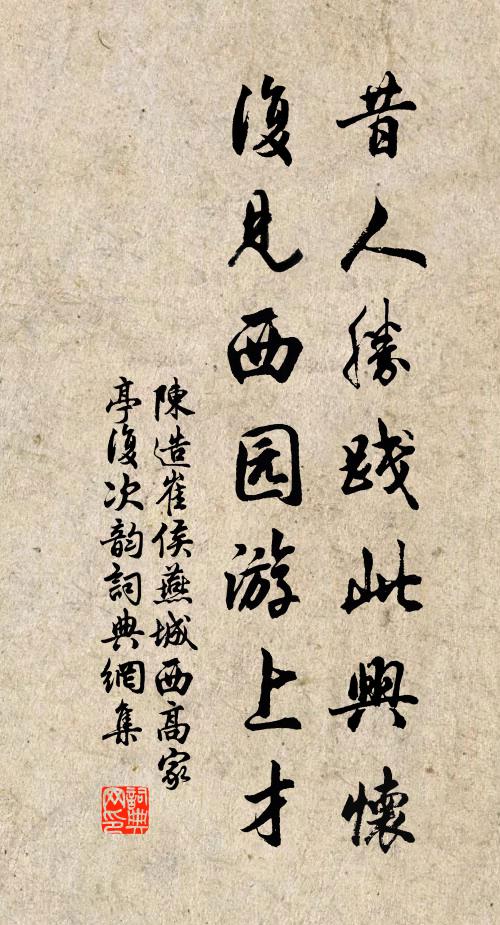 昔人勝踐此興懷
復見西园游上才
陳造崔侯燕城西高家
亭復次韵詞典網集
詞典网印